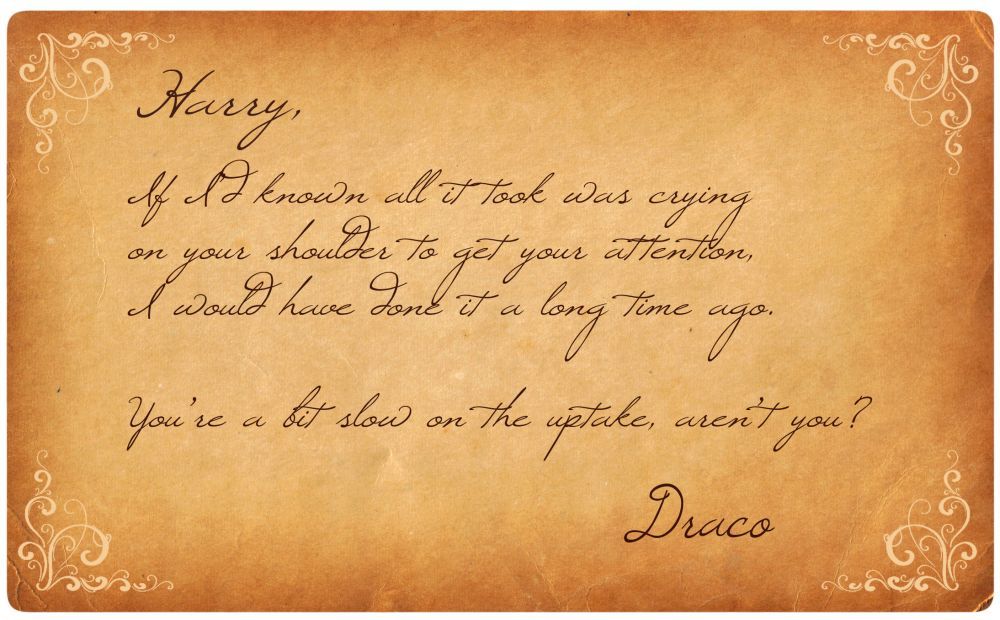 Harry,
If I'd known all it took was crying
on your shoulder to get your attention,
I would have done it a long time ago.
You're a bit slow on the uptake, aren't you?
Draco